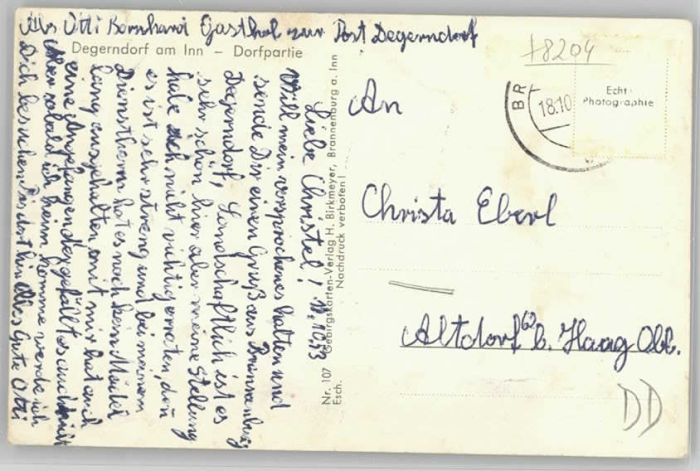 Abs Otti Bernhard Gasthof zur Post Degerndorf
Degerndorf am Inn – Dorfpartie
78204
Echt
Photographie
BR
18.10
Liebe Christel! 17.10.53
Will mein versprochenes halten und
sende Dir einen Gruß aus Brannenburg
Degerndorf, Landschaftlich ist es
sehr schön hier aber meine Stellung
habe ich nicht richtig erraten den
es ist sehr streng und bei meinem
Dienstherrn hat es noch kein Mädel
lang ausgehalten mit mir hat auch
eine angefangen der gefällt es auch nicht
Aber sobald ich heim komme werde ich
Dich besuchen bis dorthin Alles Gute Otti
Nr. 107 Gebirgskarten-Verlag H. Birkmeyer, Brannenburg a. Inn
Esch. Nachdruck verboten!
An
Christa Eberl
Altdorf 63 b. Haag Obb.
DD